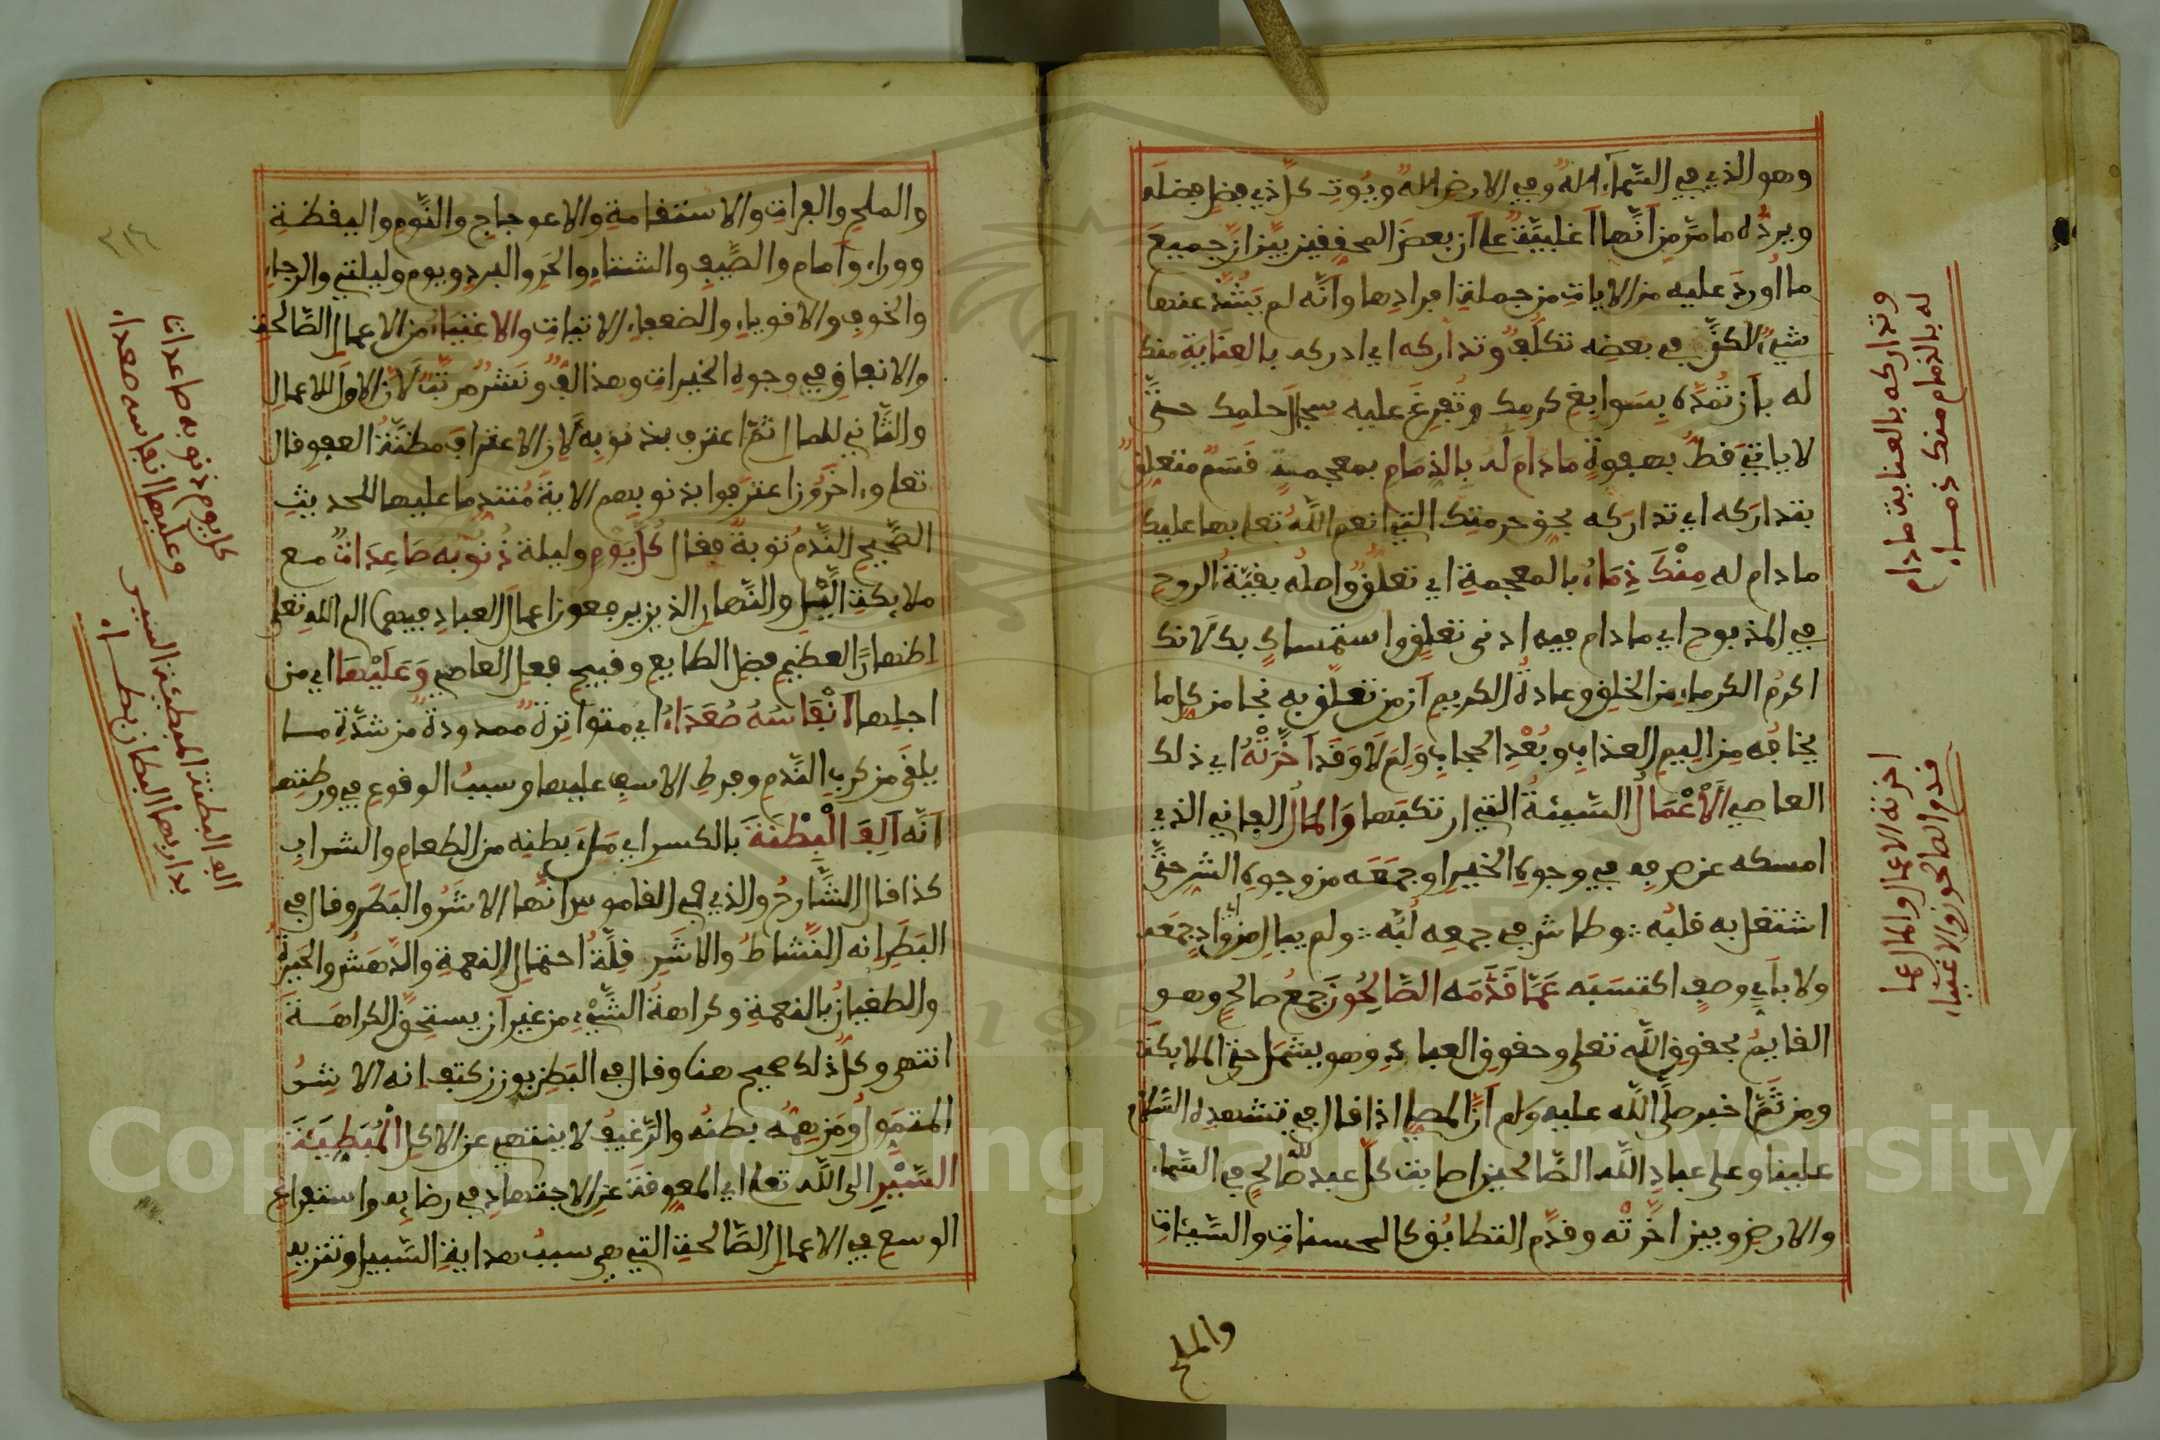 وهو الذي في السماء اله وفي الارض اله ويوت كل ذي فضل فضله
ويرده ما مر من انها اغلبية على ان بعض المحققين بين ان جميع
ما اورد عليه من الايات من جملة افرادها وانه لم يشذ عنها
شيء لكن في بعضه تكلف وتداركه اي ادركه بالعناية منك
له بان تمده بسوابغ كرمك وتفرغ عليه سجال حلمك حتى
لا ياتي قط بهفوة ما دام له بالذمام بمعجمة قسم متعلق
بتداركه اي تداركه بحق حرمتك التي انعم الله تعا بها عليك
ما دام له منك ذماء بالمعجمة اي تعلق واصله بقية الروح
في المذبوح اي ما دام فيه ادنى تعلق واستمساك بك لانك
اكرم الكرماء من الخلق وعادة الكريم ان من تعلق به نجا من كل ما
يخافه من اليم العذاب وبعد الحجاب ولم لا وقد اخرته اي ذلك
العاصي الاعمال السيئة التي ارتكبها والمال الفاني الذي
امسكه عن صرفه في وجوه الخير او جمعه من وجوه الشر حتى
اشتغل به قلبه وطاش في جمعه لبه ولم يبال من اي واد جمعه
ولا باي وصف اكتسبه عما قدمه الصالحون جمع صالح وهو
القايم بحقوق الله تعلى وحقوق العباد وهو يشمل حتى الملايكة
ومن ثم اخبر صلى الله عليه ولم ان المصلي اذا قال في تشهده السلام
علينا وعلى عباد الله الصالحين اصابت كل عبد لله صالح في السماء
والارض وبين اخرته وقدم التطابق كالحسنات والسيئات
والملح
وتداركه بالعناية ما دام
له بالذمام منك ذمـاء
اخرته الاعمال والمال عما
قدم الصالحون والاغنياء
والملح والفرات والاستقامة والاعوجاج والنوم واليقظة
ووراء وامام والصيف والشتاء والحر والبرد ويوم وليلة والرجاء
والخوف والاقوياء والضعفاء الاتيات والاغنياء من الاعمال الصالحة
والانفاق في وجوه الخيرات وهذا لف ونشر مرتب لان الاول للاعمال
والثاني للمال ثم اعترف بذنوبه لان الاعتراف مظنة العفو قال
تعلى واخرون اعترفوا بذنوبهم الاية مستندما عليها للحديث
الصحيح الندم توبة فقال كل يوم وليلة ذنوبه صاعدات مع
ملايكة الليل والنهار الذين يرفعون اعمال العباد فيهما الى الله تعلى
اظهارا لعظيم فضل الطايع وقبيح فعل العاصي وعليها اي من
اجلها انفاسه صعداء اي متواترة ممدودة من شدة مـا
يلقى من كرب الندم وفرط الاسف عليها وسبب الوقوع في ورطتها
انه الف البطنة بالكسر اي مل بطنه من الطعام والشراب
كذا قال الشارح والذي في القاموس انها الاشر والبطر وقال في
البطر انه النشاط والاشر قلة احتمال النعمة والدهش والحيرة
والطغيان بالنعمة وكراهة الشيء من غير ان يستحق الكراهـة
انتهى وكل ذلك صحيح هنا وقال في البطن بوزن كتف انه الاشر
المتمول ومن همه بطنه والرغيب لا ينتهي عن الاكل المبطيئة
السير الى الله تعلى اي المعوقة عن الاجتهاد في رضايه واستفراغ
الوسع في الاعمال الصالحة التي هي سبب هداية السبيل وتنزيه
كل يوم ذنوبه صاعدات
وعليها انفاسه صعداء
الف البطنة المبطيئة السير
بدار بها البطان بطـاء
Copyright © King Saud University
195